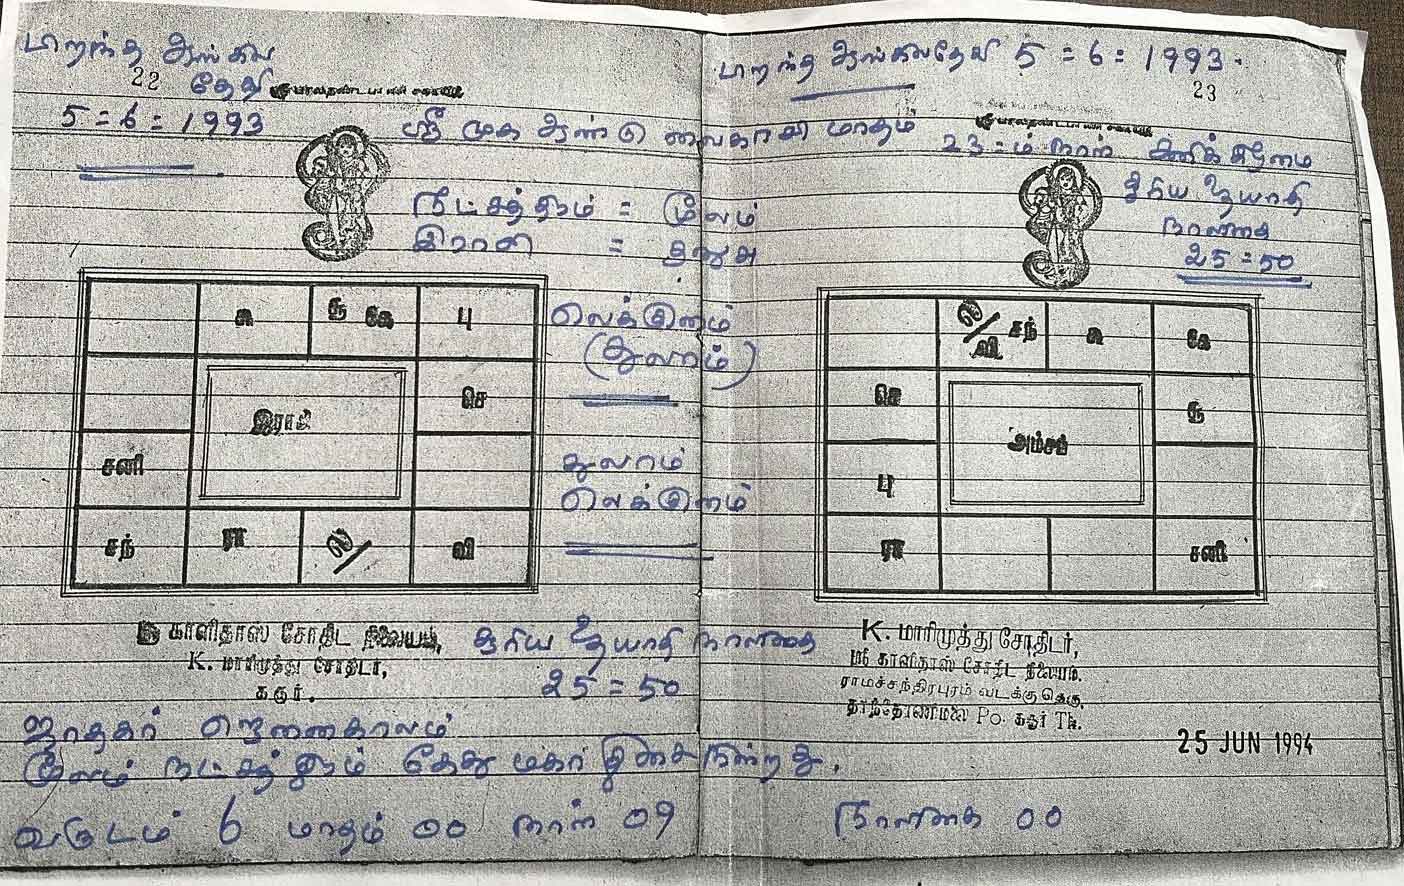 பிறந்த ஆங்கில
22 தேதி
5=6=1993
ஸ்ரீ முக ஆண்டு வைகாசி மாதம்
நட்சத்திரம் = மூலம்
இராசி = தனுசு
சு சூ கே பு
செ
இராசி
சனி
சந் ரா ல/ வி
லெக்குனம்
(துலாம்)
துலாம்
லெக்குனம்
காளிதாஸ் சோதிட நிலையம்,
K. மாரிமுத்து சோதிடர்,
கரூர்.
சூரிய உதயாதி நாளிகை
25=50
ஜாதகர் ஜெனனகாலம்
மூலம் நட்சத்திரம் கேது மகா திசை நின்றது.
வருடம் 6 மாதம் 00 நாள் 09
பிறந்த ஆங்கிலதேதி 5=6=1993.
23
23-ம் நாள் சனிக்கிழமை
சூரிய உதயாதி
நாளிகை
25=50
ல/ வி சந் சு கே
செ
கு
அம்சம்
பு
ரா சனி
K. மாரிமுத்து சோதிடர்,
ஸ்ரீ காளிதாஸ் சோதிட நிலையம்.
ராமச்சந்திரபுரம் வடக்கு தெரு,
தாந்தோணிமலை Po. கரூர் Tk.
25 JUN 1994
நாளிகை 00